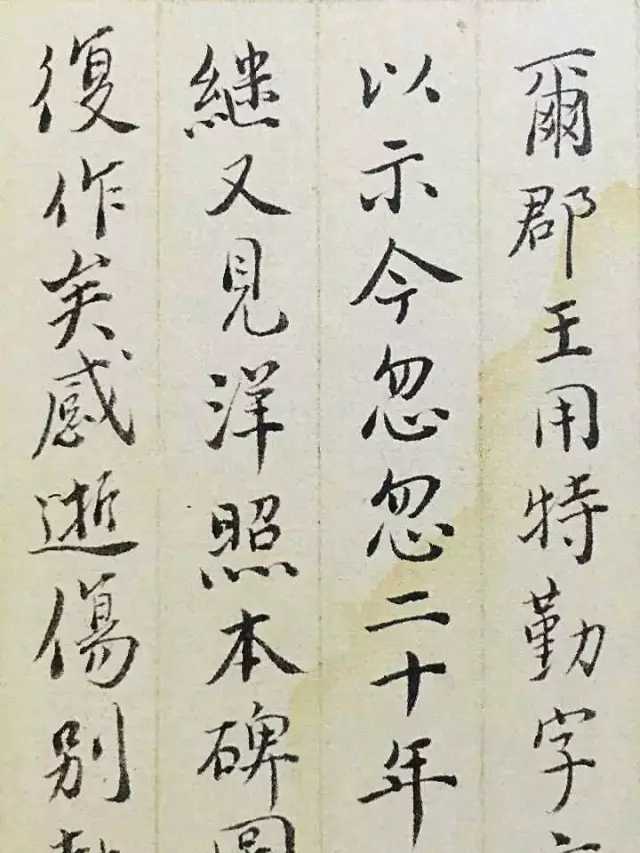 爾郡王用特勤字
以示今忽忽二十年
継又見洋照本碑圖
復作矣感逝傷別